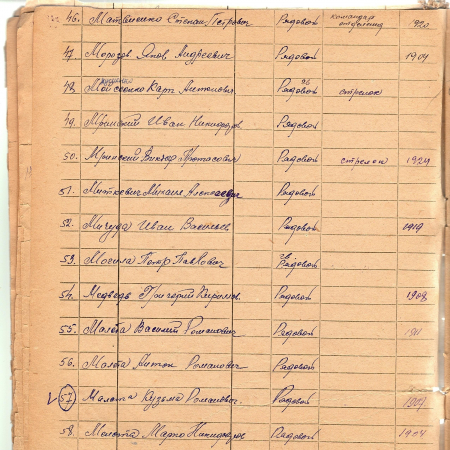 46. Матвиенко Степан Петрович Рядовой командир отделения 1920
47. Морозов Яков Андреевич Рядовой 1904
48. Мойсеенко Карп Антонович гв Рядовой стрелок
49. Мринский Иван Никифоров. Рядовой
50. Мринский Виктор Протасович Рядовой стрелок 1924
51. Миткевич Михаил Алексеевич Рядовой
52. Мичуда Иван Васильев Рядовой 1919
53. Мосила Петр Павлович гв Рядовой
54. Медведь Григорий Рядовой 1908
55. Малета Василий Романович Рядовой 1911
56. Малета Антон Романович Рядовой
57. Малета Кузьма Романович. Рядовой
58. Малета Марко Никифоров Рядовой 1904